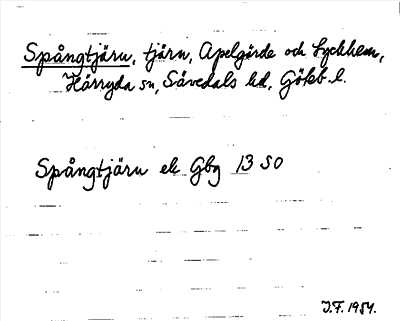 Spångtjärn, tjärn, Apelgärde och Lyckhem,
Härryda sn, Sävedals hd, Götb. l.
Spångtjärn ek Gbg 13 SO
J.F. 1954.